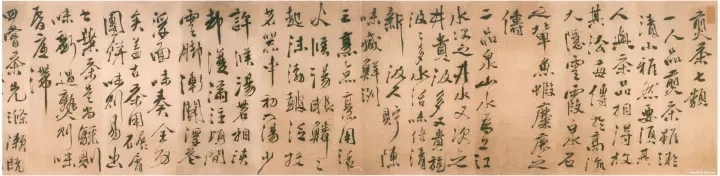 煎茶七類
一人品煎茶雖微
清小雅然要須其
人與茶品相得故
其法每傳於高流
大隱雲霞泉石
之輩魚蝦麋鹿之
儔
二品泉山水為上江
水次之井水又次之
井貴汲多又貴旋
汲汲多水活味倍清
新汲久貯陳
味減鮮冽
三烹點烹用活
火候湯眼鱗鱗
起沫浡鼓泛投
茗器中初入湯少
許候湯茗相浹
卻復滿注頃間
雲腳漸開浮花
浮面味奏全功
矣蓋古茶用碾屑
團餅味則易出
葉茶是尚驟則
味虧過熟則味
昏底滯
四嘗茶先滌漱既